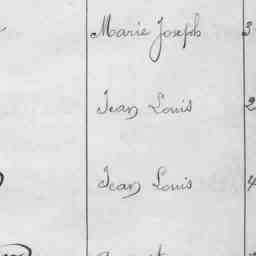 Marie Joseph 3
Jean Louis 2
Jean Louis 4